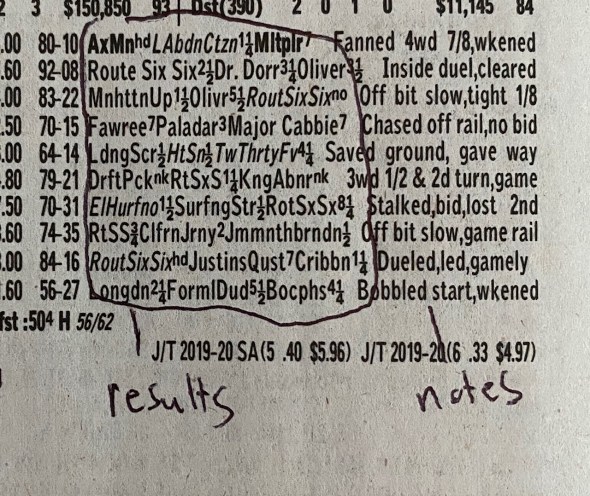 2 3 $150,850 93 Dst(390) 2 0 1 0 $11,145 84
.00 80-10 AxMnhdLAbdnCtzn1¼Mltplr7 Fanned 4wd 7/8,wkened
.60 92-08 Route Six Six2½Dr. Dorr3¼Oliver3½ Inside duel,cleared
.00 83-22 MnhttnUp1½Olivr5½RoutSixSixno Off bit slow,tight 1/8
.50 70-15 Fawree7Paladar3Major Cabbie7 Chased off rail,no bid
.00 64-14 LdngScr½HtSn½TwThrtyFv4¼ Saved ground, gave way
.80 79-21 DrftPcknkRtSxS1¼KngAbnrnk 3wd 1/2 & 2d turn,game
.50 70-31 ElHurfno1½SurfngStr½RotSxSx8¼ Stalked,bid,lost 2nd
.60 74-35 RtSS¾ClfrnJrny2Jmmnthbrndn½ Off bit slow,game rail
.00 84-16 RoutSixSixhdJustinsQust7Cribbn1¼ Dueled,led,gamely
.60 56-27 Longdn2¼FormlDud5½Bocphs4¼ Bobbled start,wkened
fst :504 H 56/62
J/T 2019-20 SA(5 .40 $5.96) J/T 2019-20(6 .33 $4.97)
results notes